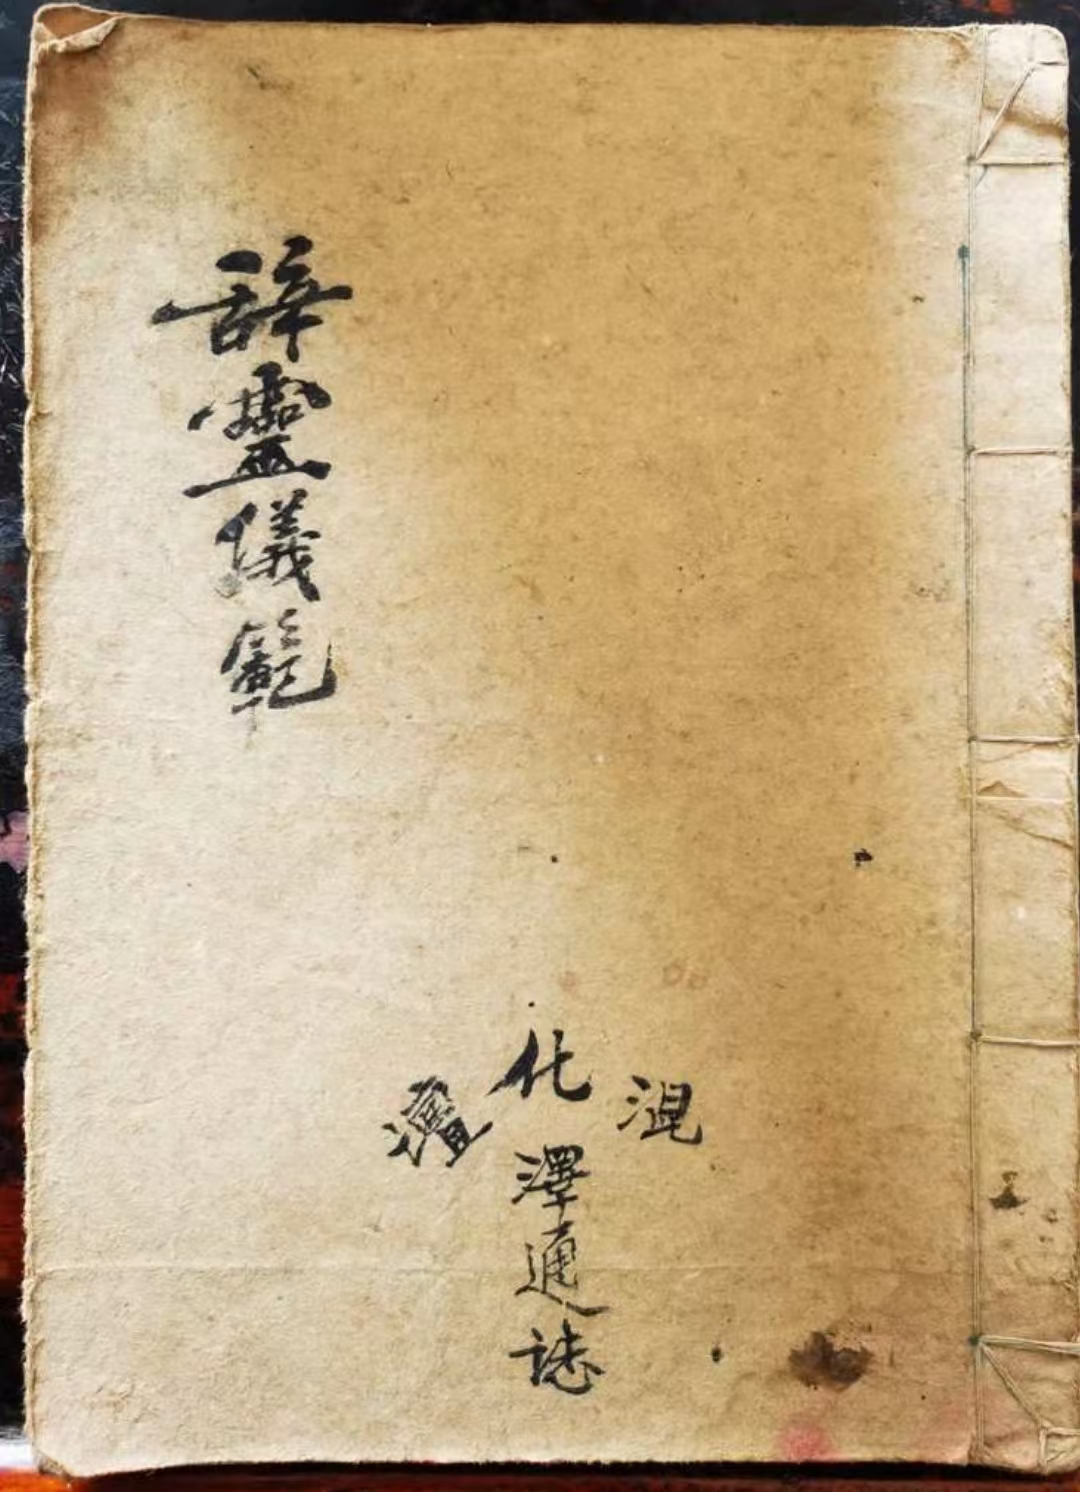 辞靈儀範
混
化
澤通誌